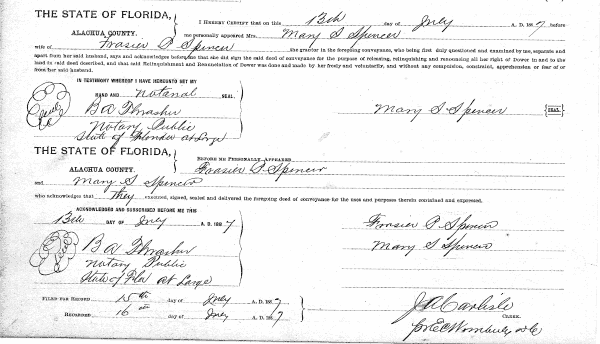 THE STATE OF FLORIDA,
ALACHUA COUNTY.
I HEREBY CERTIFY that on this 13th day of July A. D. 1887 before
me personally appeared Mrs. Mary S Spencer
wife of Frasier P. Spencer the grantor in the foregoing conveyance, who being first duly questioned and examined by me, separate and
apart from her said husband, says and acknowledges before me that she did sign the said deed of conveyance for the purpose of releasing, relinquishing and renouncing all her right of Dower in and to the
land in said deed described, and that said Relinquishment and Renunciation of Dower was done and made by her freely and voluntarily, and without any compulsion, constraint, apprehension or fear of or
from her said husband.
IN TESTIMONY WHEREOF I HAVE HEREUNTO SET MY
HAND AND Notarial SEAL.
B A Thrasher
Notary Public
State of Florida at Large
Mary S Spencer {SEAL.}
THE STATE OF FLORIDA,
ALACHUA COUNTY.
BEFORE ME PERSONALLY APPEARED
Frasier P. Spencer
and Mary S Spencer
who acknowledges that They executed, signed, sealed and delivered the foregoing deed of conveyance for the uses and purposes therein contained and expressed.
ACKNOWLEDGED AND SUBSCRIBED BEFORE ME THIS
13th DAY OF July A. D. 1887
B A Thrasher
Notary Public
State of Fla at Large
Frasier P. Spencer
Mary S Spencer
FILED FOR RECORD 15th day of July A. D. 1887
RECORDED 16th day of July A. D. 1887
J A Carlisle
CLERK.